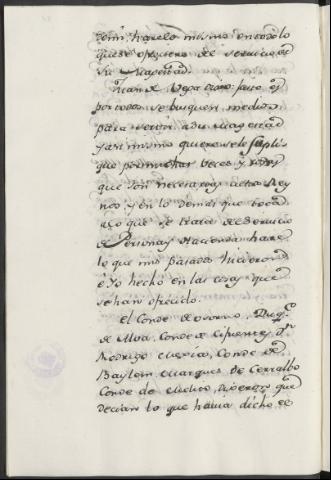 que se ofreciere de servicio de
Su Magestad.
Juan de Vega dixo: Juro es
por todos se busquen medios
para servir a su magestad
y asi mismo quiere se le suplique
que por muchas veces y
que son necesarias estos Rey
nos y en lo demas que toca
a lo que se trata de servicio
de Personas y Hacienda hare
lo que mis pasados hicieron
é Yo hecho en las cosas que
se han ofrecido.
El Conde de Osorno, Duq.e
de Alva, Conde de Cifuentes, d.n
Rodrigo Mexico, Conde de
Baylen Marques de Cerralbo
Conde de Melito, dixeron que
decian lo que havia dicho el